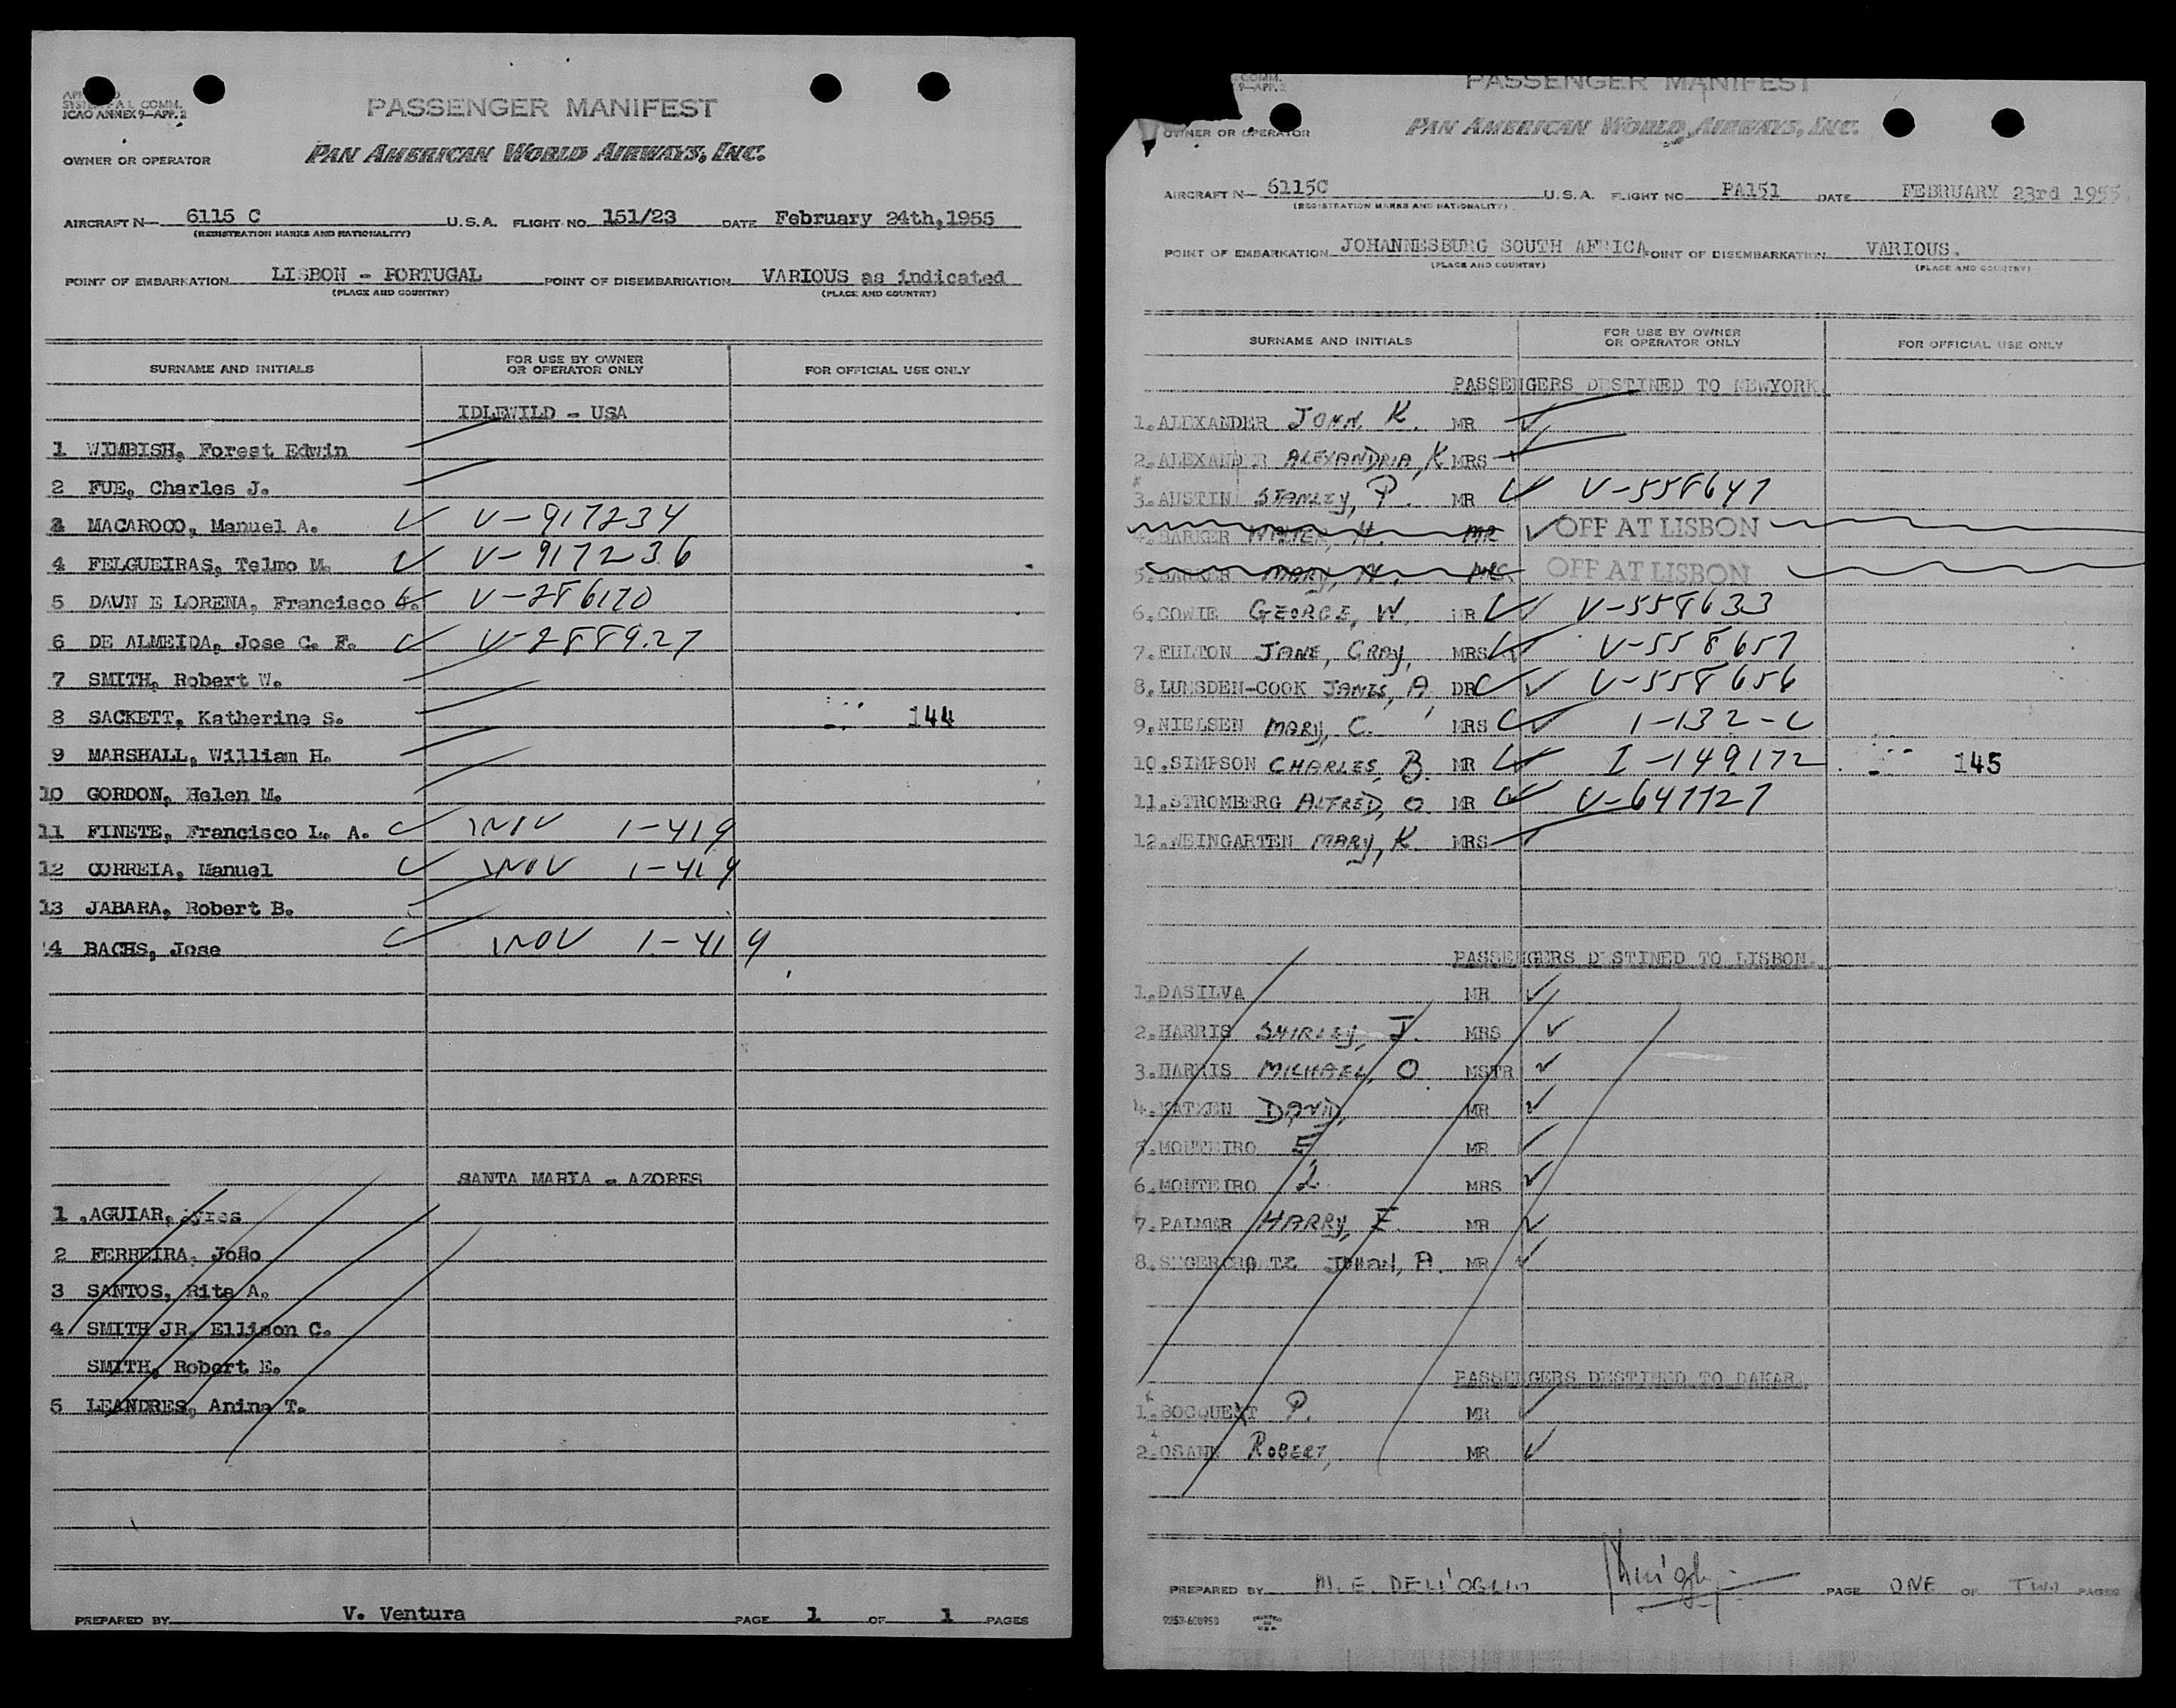 SYSTEM A L COMM.
ICAO ANNEX 9—APP. 2
PASSENGER MANIFEST
OWNER OR OPERATOR PAN AMERICAN WORLD AIRWAYS, INC.
AIRCRAFT N— 6115 C U.S.A. FLIGHT NO. 151/23 DATE February 24th,1955
(REGISTRATION MARKS AND NATIONALITY)
POINT OF EMBARKATION LISBON - PORTUGAL POINT OF DISEMBARKATION VARIOUS as indicated
(PLACE AND COUNTRY) (PLACE AND COUNTRY)
SURNAME AND INITIALS FOR USE BY OWNER OR OPERATOR ONLY FOR OFFICIAL USE ONLY
IDLEWILD - USA
1 WIMBISH, Forest Edwin
2 FUE, Charles J.
3 MACAROCO, Manuel A. V-917234
4 FELGUEIRAS, Telmo M. V-917236
5 DAWN E LORENA, Francisco V-286170
6 DE ALMEIDA, Jose C. F. V-288927
7 SMITH, Robert W.
8 SACKETT, Katherine S. 144
9 MARSHALL, William H.
10 GORDON, Helen M.
11 FINETE, Francisco L. A. 1-419
12 CORREIA, Manuel 1-419
13 JABARA, Robert B.
14 BACHS, Jose 1-419
SANTA MARIA - AZORES
1 AGUIAR, Ayres
2 FERREIRA, João
3 SANTOS, Rita A.
4 SMITH JR, Ellison C.
SMITH, Robert E.
5 LEANDRES, Anina T.
PREPARED BY V. Ventura PAGE 1 OF 1 PAGES
COMM.
9—APP. 2
PASSENGER MANIFEST
OWNER OR OPERATOR PAN AMERICAN WORLD AIRWAYS, INC.
AIRCRAFT N— 6115C U.S.A. FLIGHT NO. PA151 DATE FEBRUARY 23rd 1955.
(REGISTRATION MARKS AND NATIONALITY)
POINT OF EMBARKATION JOHANNESBURG SOUTH AFRICA POINT OF DISEMBARKATION VARIOUS.
(PLACE AND COUNTRY) (PLACE AND COUNTRY)
SURNAME AND INITIALS FOR USE BY OWNER OR OPERATOR ONLY FOR OFFICIAL USE ONLY
PASSENGERS DESTINED TO NEWYORK.
1.ALEXANDER JOHN K. MR
2.ALEXANDER ALEXANDRIA, K MRS
3.AUSTIN STANLEY, P. MR V-558647
4.BARKER H. MR OFF AT LISBON
5.BARKER MARY, MRS OFF AT LISBON
6.COWIE GEORGE, W. MR V-558633
7.FULTON JANE, GRAY, MRS V-558657
8.LUMSDEN-COOK JAMES, A, DR V-558656
9.NIELSEN MARY, C. MRS 1-132-C
10.SIMPSON CHARLES, B. MR I-149172 145
11.STROMBERG ALFRED, O. MR V-647727
12.WEINGARTEN MARY, K. MRS
PASSENGERS DESTINED TO LISBON.
1.DASILVA MR
2.HARRIS SHIRLEY, J. MRS
3.HARRIS MICHAEL, O. MSTR
4.KATZEN DAVID, MR
5.MONTEIRO E. MR
6.MONTEIRO MRS
7.PALMER HARRY, E. MR
8. JOHAN, A. MR
PASSENGERS DESTINED TO DAKAR.
1.BOCQUENT P. MR
2. ROBERT, MR
PREPARED BY M.E. DELL'OGLIO PAGE ONE OF TWO PAGES
9253-608953 PRINTED IN U.S.A.